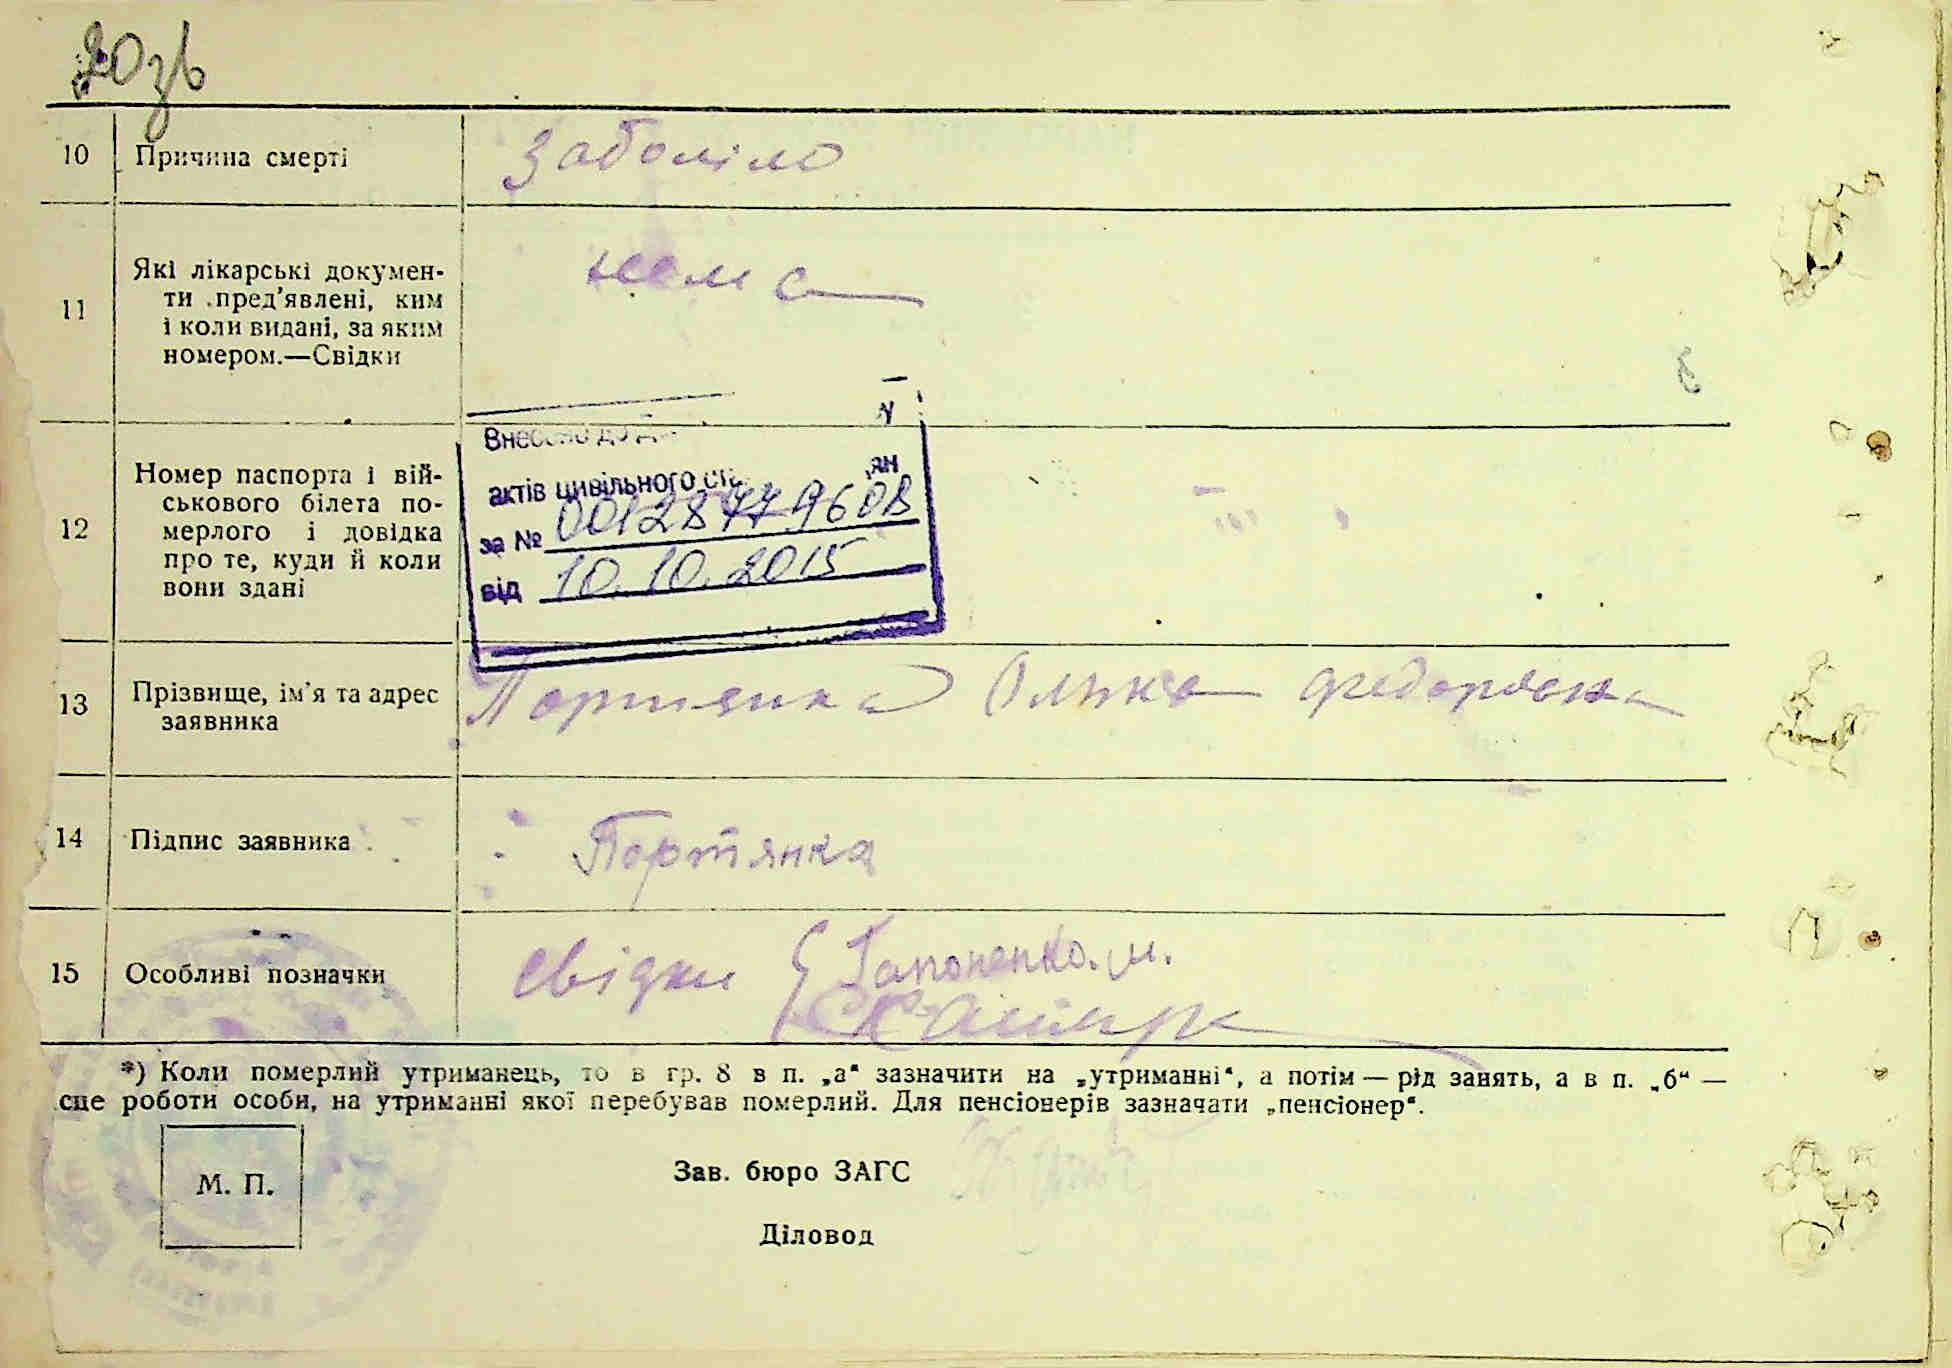 20зв
10 Причина смерті Заболіло
11 Які лікарські докумен-
ти пред'явлені, ким
і коли видані, за яким
номером.—Свідки
нема
12 Номер паспорта і вій-
ськового білета по-
мерлого і довідка
про те, куди й коли
вони здані
Внесено до
актів цивільного
за № 00128779608
від 10.10.2015
13 Прізвище, ім'я та адрес
заявника
Портянка Олька Федоровна
14 Підпис заявника Портянка
15 Особливі позначки свідки Гапоненко. М.
*) Коли померлий утриманець, то в гр. 8 в п. „а“ зазначити на „утриманні“, а потім — рід занять, а в п. „б“ —
сце роботи особи, на утриманні якої перебував померлий. Для пенсіонерів зазначати „пенсіонер“.
М. П.
Зав. бюро ЗАГС
Діловод